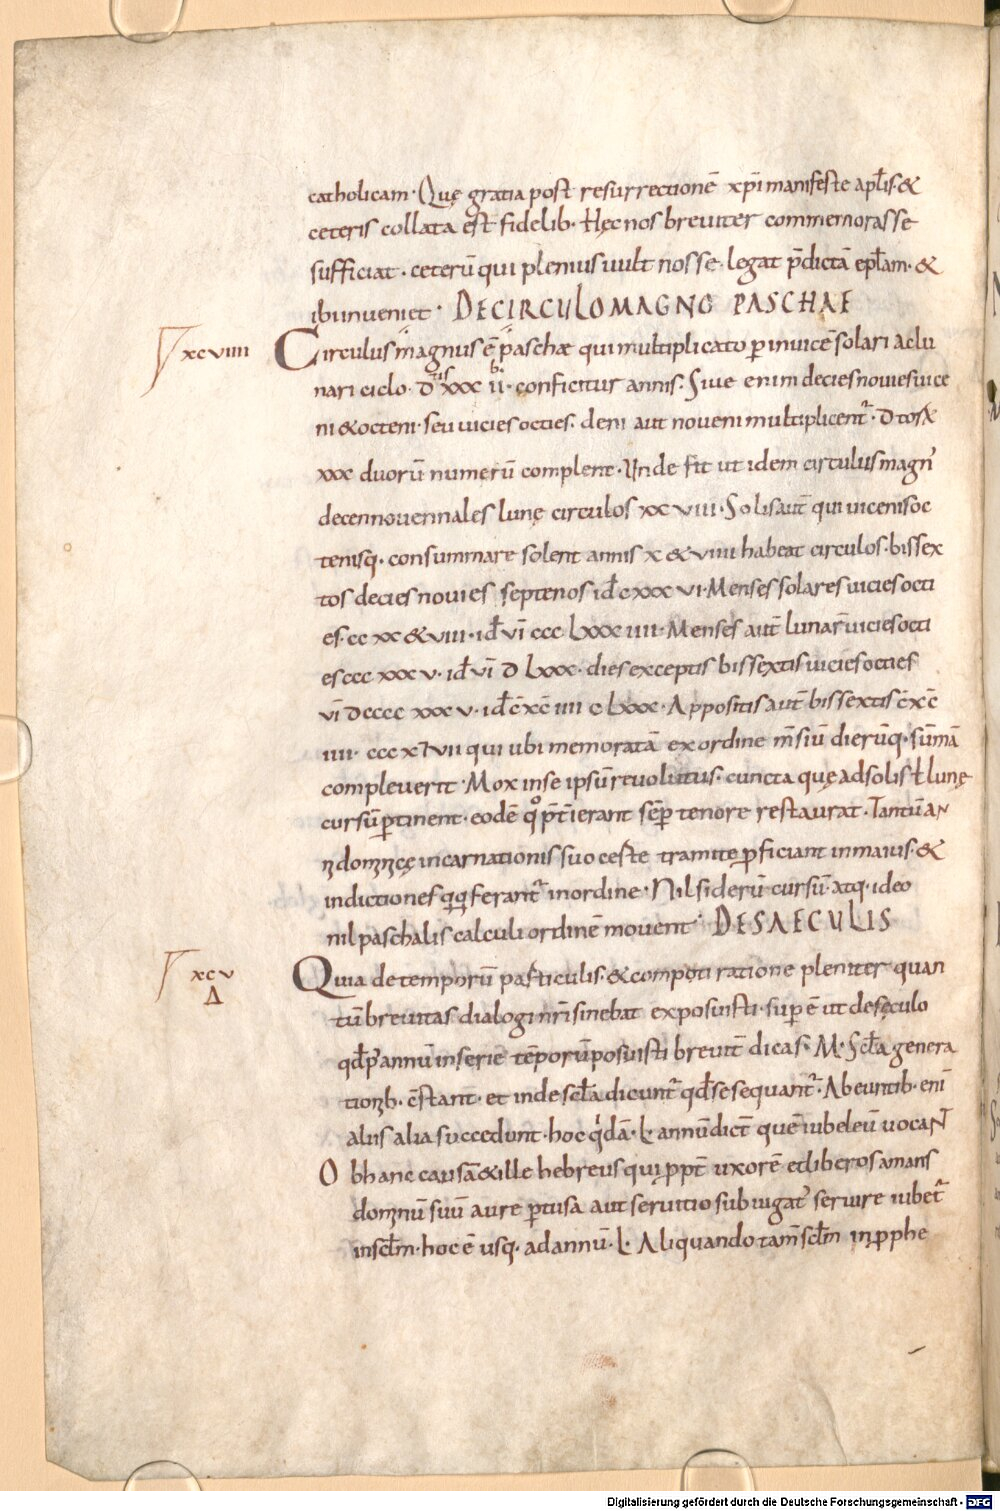 catholicam · Quę gratia post resurrectionē xp̄i manifeste apl̄is · &
ceteris collata est fidelib · Hęc nos breuiter commemorasse
sufficiat · ceterū qui plenius uult nosse · legat p̄dictā epl̄am · &
ibi inueniet · DE CIRCULO MAGNO PASCHAE
xcviiii
Circulus magnus ē paschae qui multiplicato p inuicē solari ac lu
nari ciclo · D xxx ii · conficitur annis · Siue enim decies nouies uice
ni & octeni · seu uicies octies · deni aut noueni multiplicent᷑ · D tos &
xxx duorū numerū complent · Unde fit ut idem circulus magn᷒
decennouennales lunę circulos xx viii · Solis aut̄ qui uicenis oc
tenisq · consummare solent annis x & viiii habeat circulos · bissex
tos decies nouies septenos id̄ c xxx vi · Menses solares uicies octi
es · cc xx & viii · id̄ vi ccc lxxx iiii · Menses aut̄ lunar̄ uicies octi
es ccc xxx v · id̄ vi D lxxx · dies exceptis bissextis uicies octies
vi Dcccc xxx v · id̄ c̄ xc̄ iiii c lxxx · Appositis aut̄ bissextis c̄ xc̄
iiii · ccc x⁊vii qui ubi memoratā ex ordine m̄siū dierūq · sūmā
compleuerit · Mox in se ipsū reuolutus · cuncta quę ad solis ł lunę
cursū ptinent · eodē qͦ pt̄ierant sēp tenore restaurat · Tantū an
ni domnicę incarnationis suo ceste tramite pficiant in maius · &
indictiones qqferant᷑ in ordine · Nil siderū cursū · atq · ideo
nil paschalis calculi ordinē mouent · DE SAECULIS
xcv
Δ
Quia de temporū pasticulis · & compoti ratione pleniter quan
tū breuitas dialogi nr̄i sinebat exposuisti · sup ē ut de sęculo
qd̄ p annū in serie tēporū posuisti breuit̄ dicas · M · Scl̄a genera
tionib · c̄stant · et inde scl̄a dicunt᷑ qd̄ se sequant᷑ · Abeuntib · eni᷒
aliis alia succedunt · hoc qͥdā · L · annū dict̄ quē iubeleū uocant
Ob hanc causā & ille hebreus qui ppt̄ uxorē et liberos amans
domnū suū aure ptusa aut seruitio subiugat᷒ seruire iubet᷑
in scl̄m · hoc ē usq · ad annū · L · Aliquando tam̄ scl̄m in pphe
Digitalisierung gefördert durch die Deutsche Forschungsgemeinschaft - DFG